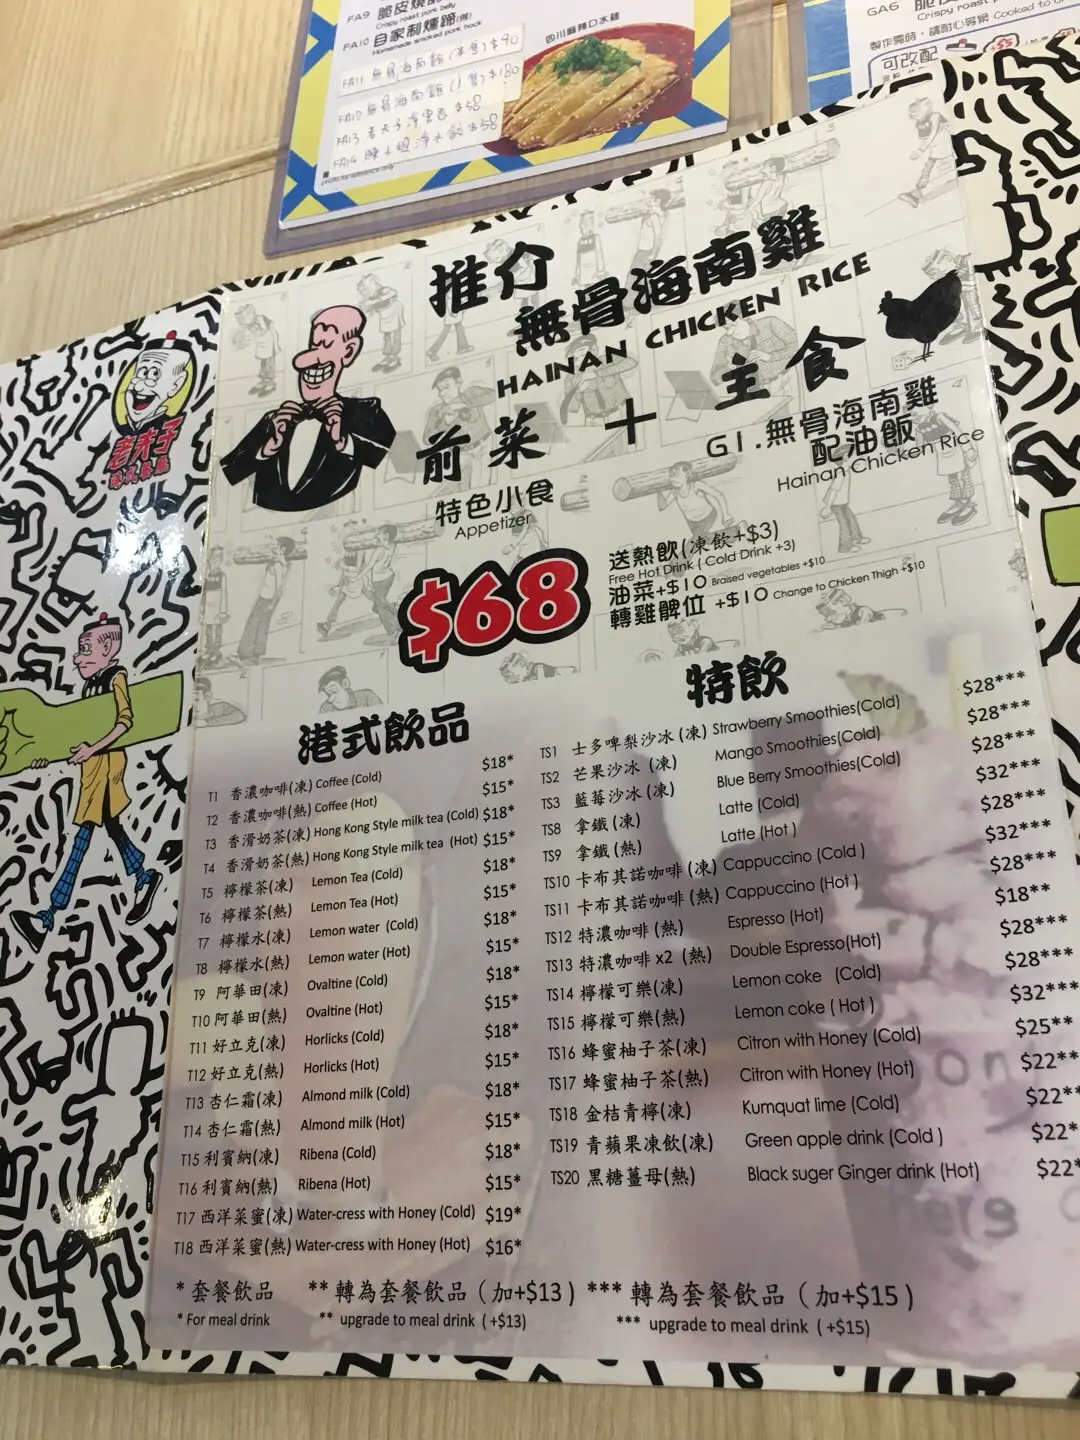 FA9 脆皮燒
Crispy roast pork belly
FA10 自家制燻蹄(例)
Homemade smoked pork hock
FA11 無骨海南雞(半隻)$90
無骨海南雞(1隻)$180
FA13 老夫子 $58
FA14 $58
photo for reference only
四川麻辣口水雞
GA6 脆皮
Crispy roast
製作需時，請耐心等候 Cooked to
可改配
老夫子
推介
無骨海南雞
HAINAN CHICKEN RICE
前菜 + 主食
特色小食
Appetizer
G1.無骨海南雞
配油飯
Hainan Chicken Rice
$68
送熱飲(凍飲+$3)
Free Hot Drink ( Cold Drink +3)
油菜+$10 Braised vegetables +$10
轉雞髀位 +$10 Change to Chicken Thigh +$10
港式飲品
T1 香濃咖啡(凍) Coffee (Cold) $18*
T2 香濃咖啡(熱) Coffee (Hot) $15*
T3 香滑奶茶(凍) Hong Kong Style milk tea (Cold) $18*
T4 香滑奶茶(熱) Hong Kong Style milk tea (Hot) $15*
T5 檸檬茶(凍) Lemon Tea (Cold) $18*
T6 檸檬茶(熱) Lemon Tea (Hot) $15*
T7 檸檬水(凍) Lemon water (Cold) $18*
T8 檸檬水(熱) Lemon water (Hot) $15*
T9 阿華田(凍) Ovaltine (Cold) $18*
T10 阿華田(熱) Ovaltine (Hot) $15*
T11 好立克(凍) Horlicks (Cold) $18*
T12 好立克(熱) Horlicks (Hot) $15*
T13 杏仁霜(凍) Almond milk (Cold) $18*
T14 杏仁霜(熱) Almond milk (Hot) $15*
T15 利賓納(凍) Ribena (Cold) $18*
T16 利賓納(熱) Ribena (Hot) $15*
T17 西洋菜蜜(凍) Water-cress with Honey (Cold) $19*
T18 西洋菜蜜(熱) Water-cress with Honey (Hot) $16*
特飲
TS1 士多啤梨沙冰 (凍) Strawberry Smoothies(Cold) $28***
TS2 芒果沙冰 (凍) Mango Smoothies(Cold) $28***
TS3 藍莓沙冰 (凍) Blue Berry Smoothies(Cold) $28***
TS8 拿鐵 (凍) Latte (Cold) $32***
TS9 拿鐵 (熱) Latte (Hot ) $28***
TS10 卡布其諾咖啡 (凍) Cappuccino (Cold ) $32***
TS11 卡布其諾咖啡 (熱) Cappuccino (Hot ) $28***
TS12 特濃咖啡 (熱) Espresso (Hot) $18**
TS13 特濃咖啡 x2 (熱) Double Espresso(Hot) $28***
TS14 檸檬可樂(凍) Lemon coke (Cold) $28***
TS15 檸檬可樂(熱) Lemon coke ( Hot ) $32***
TS16 蜂蜜柚子茶(凍) Citron with Honey (Cold) $25**
TS17 蜂蜜柚子茶(熱) Citron with Honey (Hot) $22**
TS18 金桔青檸(凍) Kumquat lime (Cold) $22**
TS19 青蘋果凍飲(凍) Green apple drink (Cold ) $22*
TS20 黑糖薑母(熱) Black suger Ginger drink (Hot) $22*
* 套餐飲品 ** 轉為套餐飲品（加+$13）*** 轉為套餐飲品（加+$15）
* For meal drink ** upgrade to meal drink ( +$13) *** upgrade to meal drink ( +$15)